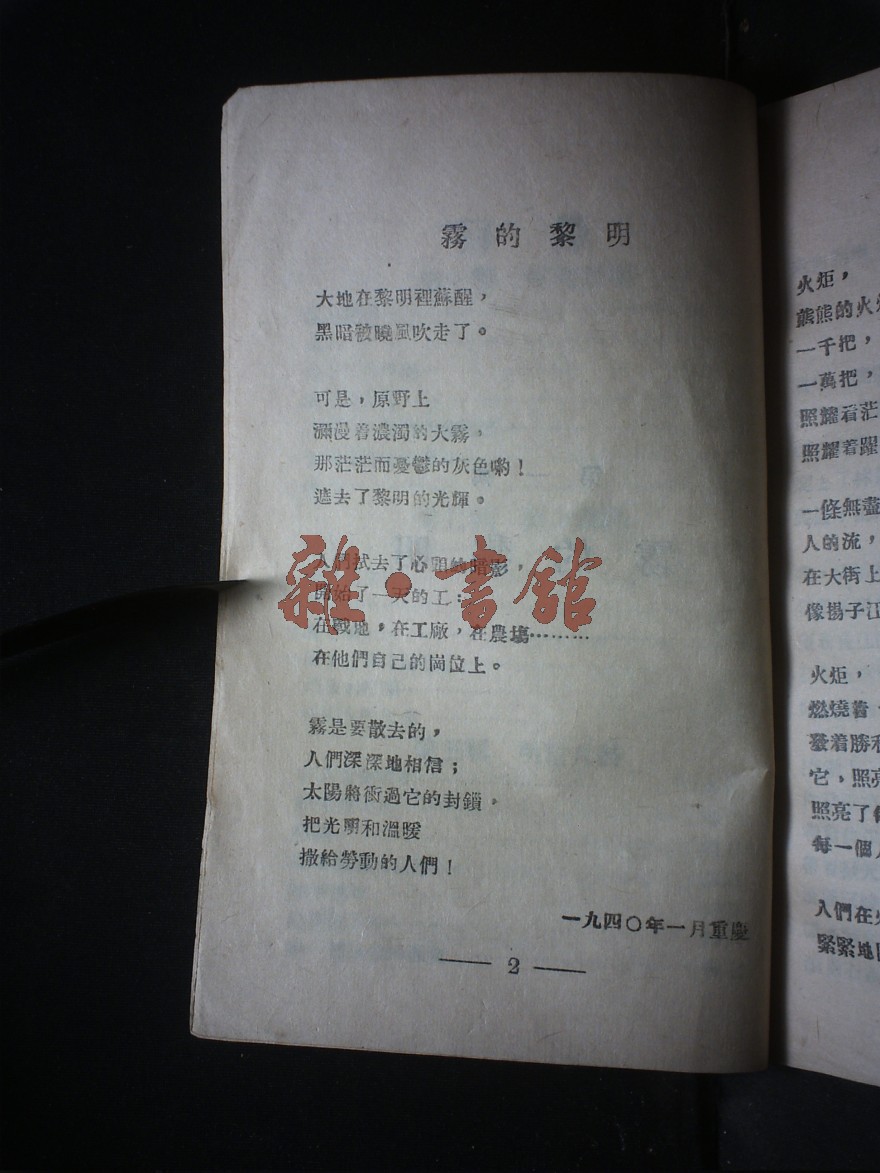 霧的黎明
大地在黎明裡蘇醒，
黑暗被曉風吹走了。
可是，原野上
瀰漫着濃濁的大霧，
那茫茫而憂鬱的灰色喲！
遮去了黎明的光輝。
人們拭去了心頭的暗影，
開始了一天的工：
在戰地，在工廠，在農場………
在他們自己的崗位上。
霧是要散去的，
人們深深地相信；
太陽將衝過它的封鎖，
把光明和溫暖
撒給勞動的人們！
一九四〇年一月重慶
—— 2 ——
雜·書館
火炬，
熊熊的火
一千把，
一萬把，
照耀着茫
照耀着躍
一條無盡
人的流，
在大街上
像揚子江
火炬，
燃燒着
發着勝利
它，照亮
照亮了
每一個人
人們在火
緊緊地